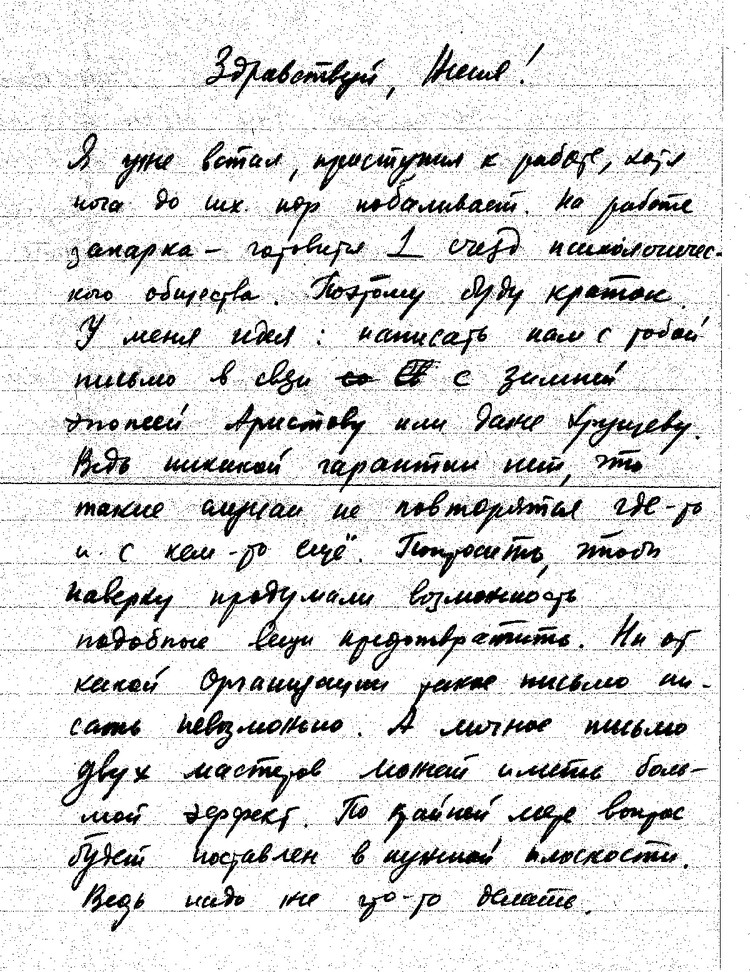 Здравствуй, Женя!
Я уже встал, приступил к работе, хотя
нога до сих пор побаливает. На работе
запарка – готовится 1 съезд психологичес-
кого общества. Поэтому буду краток.
У меня идея: написать нам с тобой
письмо в связи с зимней
эпопеей Аристову или даже Хрущеву.
Ведь никакой гарантии нет, что
такие случаи не повторятся где-то
и с кем-то ещё. Попросить, чтобы
наверху продумали возможность
подобные вещи предотвратить. Ни от
какой организации такое письмо пи-
сать невозможно. А личное письмо
двух мастеров может иметь боль-
шой эффект. По крайней мере вопрос
будет поставлен в нужной плоскости.
Ведь надо же что-то делать.